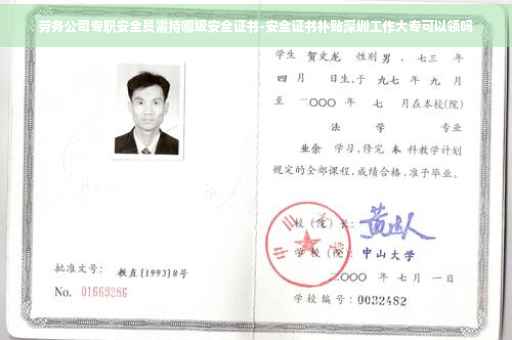 劳务公司专职安全员需持哪级安全证书-安全证书补贴深圳工作大专可以领吗
学生 贺文龙 性别 男 ，七三 年
四 月 日生，于 九七 年 九 月
至 二〇〇〇 年 七 月在本校(院)
法 学 专业
业余 学习，修完 本 科教学计划
规定的全部课程，成绩合格，准予毕业。
校（院）长：
学 校（院）：中山大学
二〇〇〇 年 七 月 一 日
学校编号：0032482
批准文号： 教直[1993]8号
No. 01669286